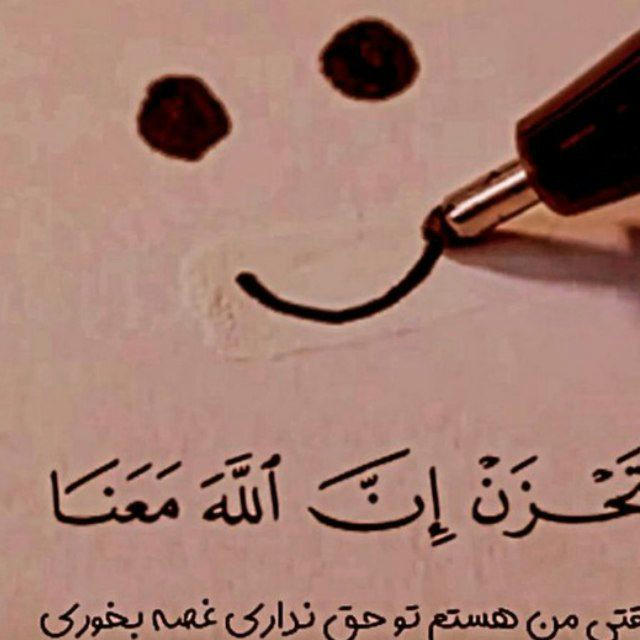 تَحْزَنْ إِنَّ ٱللَّهَ مَعَنَا
من هستم تو حق نداری غصه بخوری